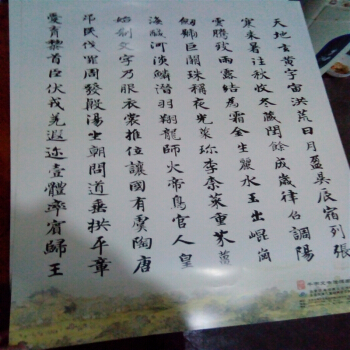 天地玄黄宇宙洪荒日月盈昃辰宿列張
寒来暑往秋收冬藏閏餘成歲律吕調陽
雲騰致雨露結為霜金生麗水玉出崐崗
劍號巨闕珠稱夜光菓珍李柰菜重芥薑
海醎河淡鱗潛羽翔龍師火帝鳥官人皇
始制文字乃服衣裳推位讓國有虞陶唐
弔民伐罪周發殷湯坐朝問道垂拱平章
愛育黎首臣伏戎羌遐迩壹體率賓歸王